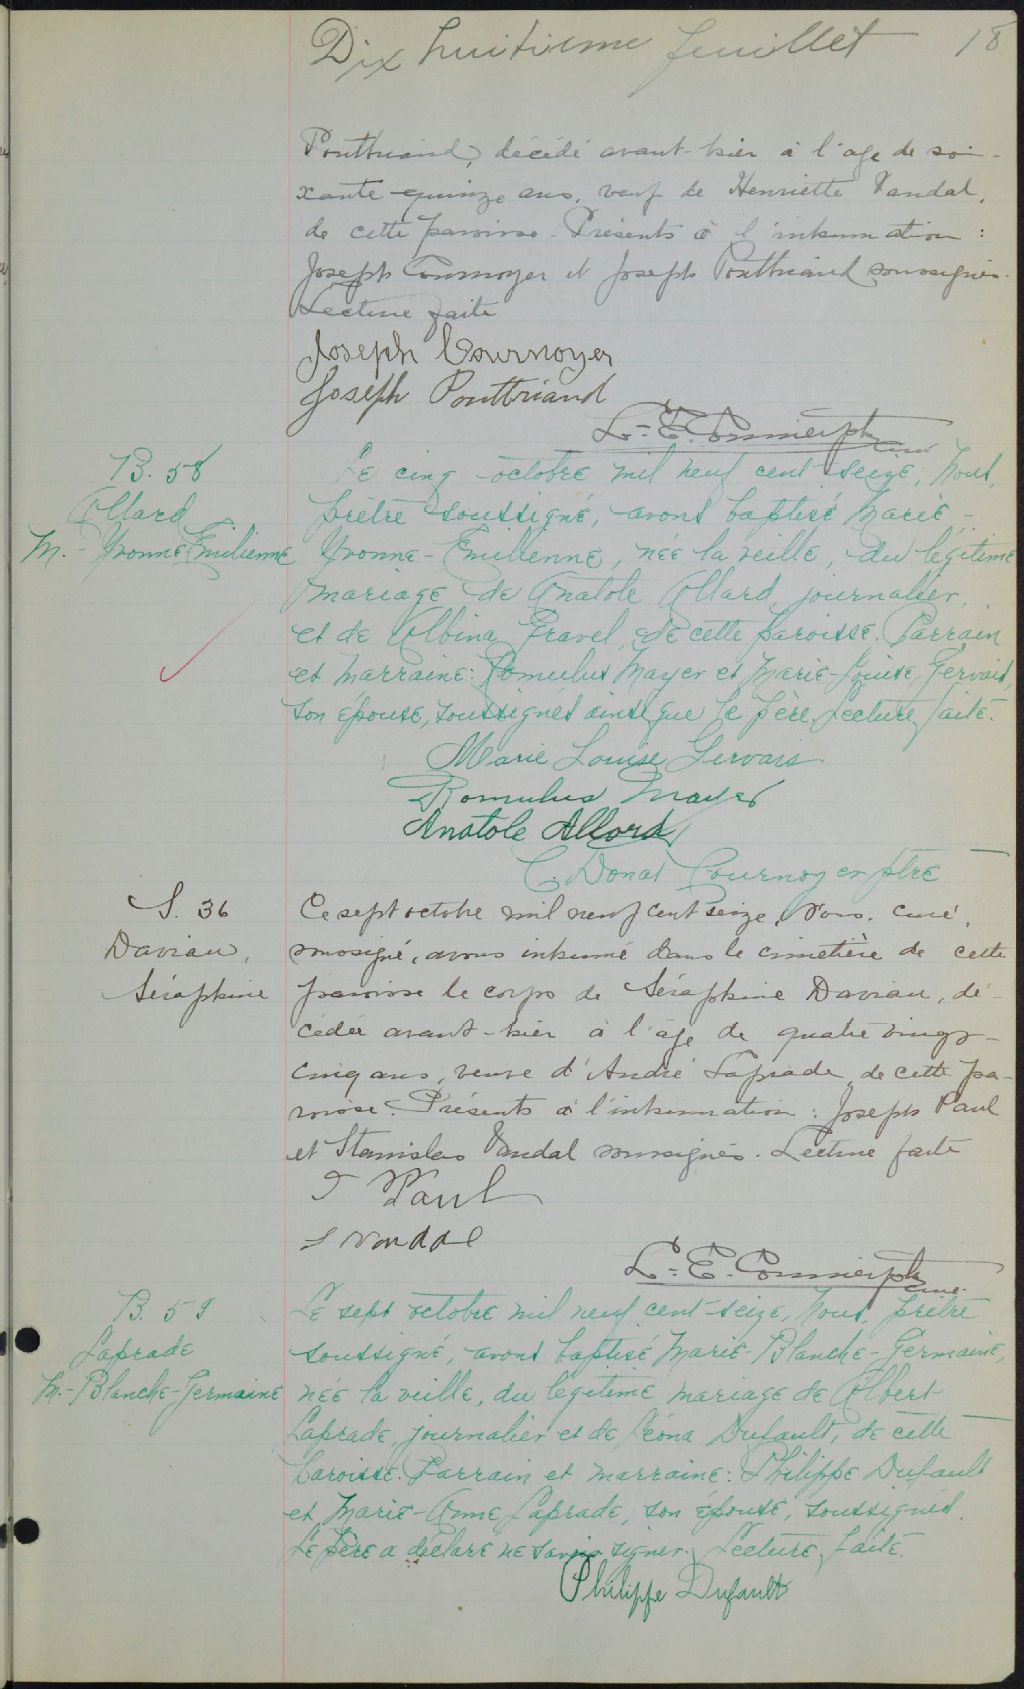 Dix huitieme feuillet 18
Pontbriand, décédé avant-hier à l'age de soi-
xante-quinze ans, veuf de Henriette Vandal,
de cette paroisse. Présents à l'inhumation :
Joseph Cournoyer et Joseph Pontbriand soussignés.
Lecture faite
Joseph Cournoyer
Joseph Pontbriand
L.-E. ptre
curé
B. 58
Allard
M.-Yvonne-Emilienne
Le cinq octobre mil neuf cent-seize, Nous,
prêtre soussigné, avons baptisé Marie-
Yvonne-Emilienne, née la veille, du légitime
mariage de Anatole Allard, journalier,
et de Albina Gravel, de cette paroisse. Parrain
et marraine: Romulus Mayer et Marie-Louise Gervais,
son épouse, soussignés ainsi que le père. Lecture faite.
Marie Louise Gervais
Romulus Mayer
Anatole Allard
C. Donat Cournoyer ptre
S. 36
Daviau,
Séraphine
Ce sept octobre mil neuf cent seize, Nous, curé,
soussigné, avons inhumé dans le cimetière de cette
paroisse le corps de Séraphine Daviau, dé-
cédée avant-hier à l'âge de quatre vingt-
cinq ans, veuve d'André Laprade, de cette pa-
roisse. Présents à l'inhumation : Joseph Paul
et Stanislas Vandal soussignés. Lecture faite
J Paul
S Vandal
L.-E. ptre
curé
B. 59
Laprade
M.-Blanche-Germaine
Le sept octobre mil neuf cent-seize, Nous, prêtre
soussigné, avons baptisé Marie-Blanche-Germaine,
née la veille, du légitime mariage de Albert
Laprade, journalier et de Léona Dufault, de cette
paroisse. Parrain et marraine: Philippe Dufault
et Marie-Anne Laprade, son épouse, soussignés.
Le père a déclaré ne savoir signer. Lecture faite.
Philippe Dufault